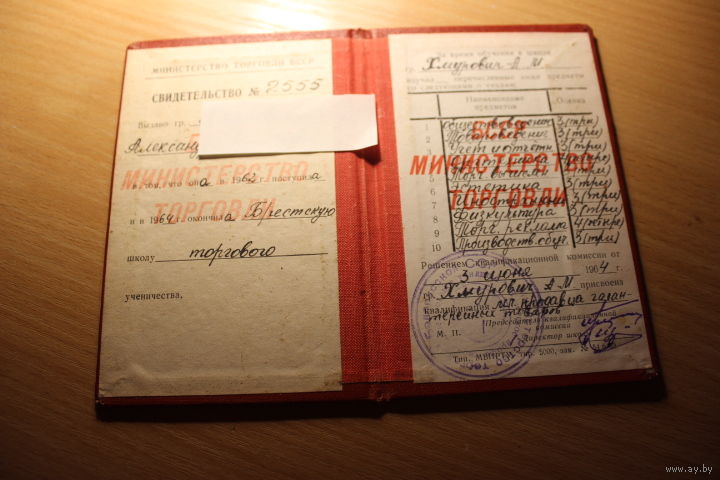 МИНИСТЕРСТВО ТОРГОВЛИ БССР
СВИДЕТЕЛЬСТВО № 2555
Выдано гр.
Александ
БССР
МИНИСТЕРСТВО
ТОРГОВЛИ
в том, что она в 1962 г. поступила
и в 1964 г. окончила Брестскую
школу торгового
ученичества.
За время обучения в школе
гр. Хмурович А М
изучил перечисленные ниже предметы
со следующими оценками
Наименование предметов Оценка
1 Обществоведение 3 (три)
2 Товароведение 3 (три)
3 Учет и отчетн. 3 (три)
4
5 Торг. вычисл. 3 (три)
6 Эстетика 3 (три)
7 3 (три)
8 Физкультура 3 (три)
9 Торг. реклама 4 (четыре)
10 Производств. обуч. 3 (три)
БССР
МИНИСТЕРСТВО
ТОРГОВЛИ
Решением квалификационной комиссии от
3 июня 1964 г.
гр. Хмурович А М присвоена
квалификация мл. продавца галан-
терейных товаров
Председатель квалификационной
комиссии
М. П. Директор школы
Тип. МВИРТУ, тир. 5000, зак.
www.ay.by